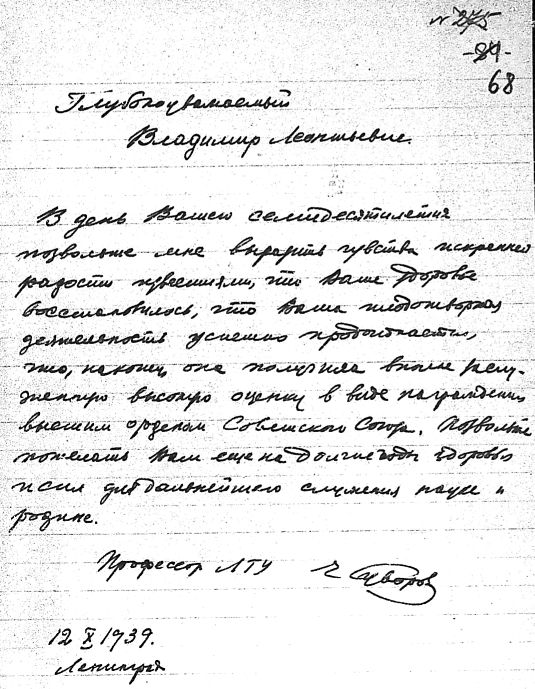 № 275
-84-
68
Глубокоуважаемый
Владимир Леонтьевич.
В день Вашего семидесятилетия
позвольте мне выразить чувства искренней
радости известиями, что Ваше здоровье
восстановилось, что Ваша плодотворная
деятельность успешно продолжается,
что, наконец, она получила вполне заслу-
женную высокую оценку в виде награждения
высшим орденом Советского Союза. Позвольте
пожелать Вам еще на долгие годы здоровья
и сил для дальнейшего служения науке и
родине.
Профессор ЛГУ Суворов
12 X 1939.
Ленинград